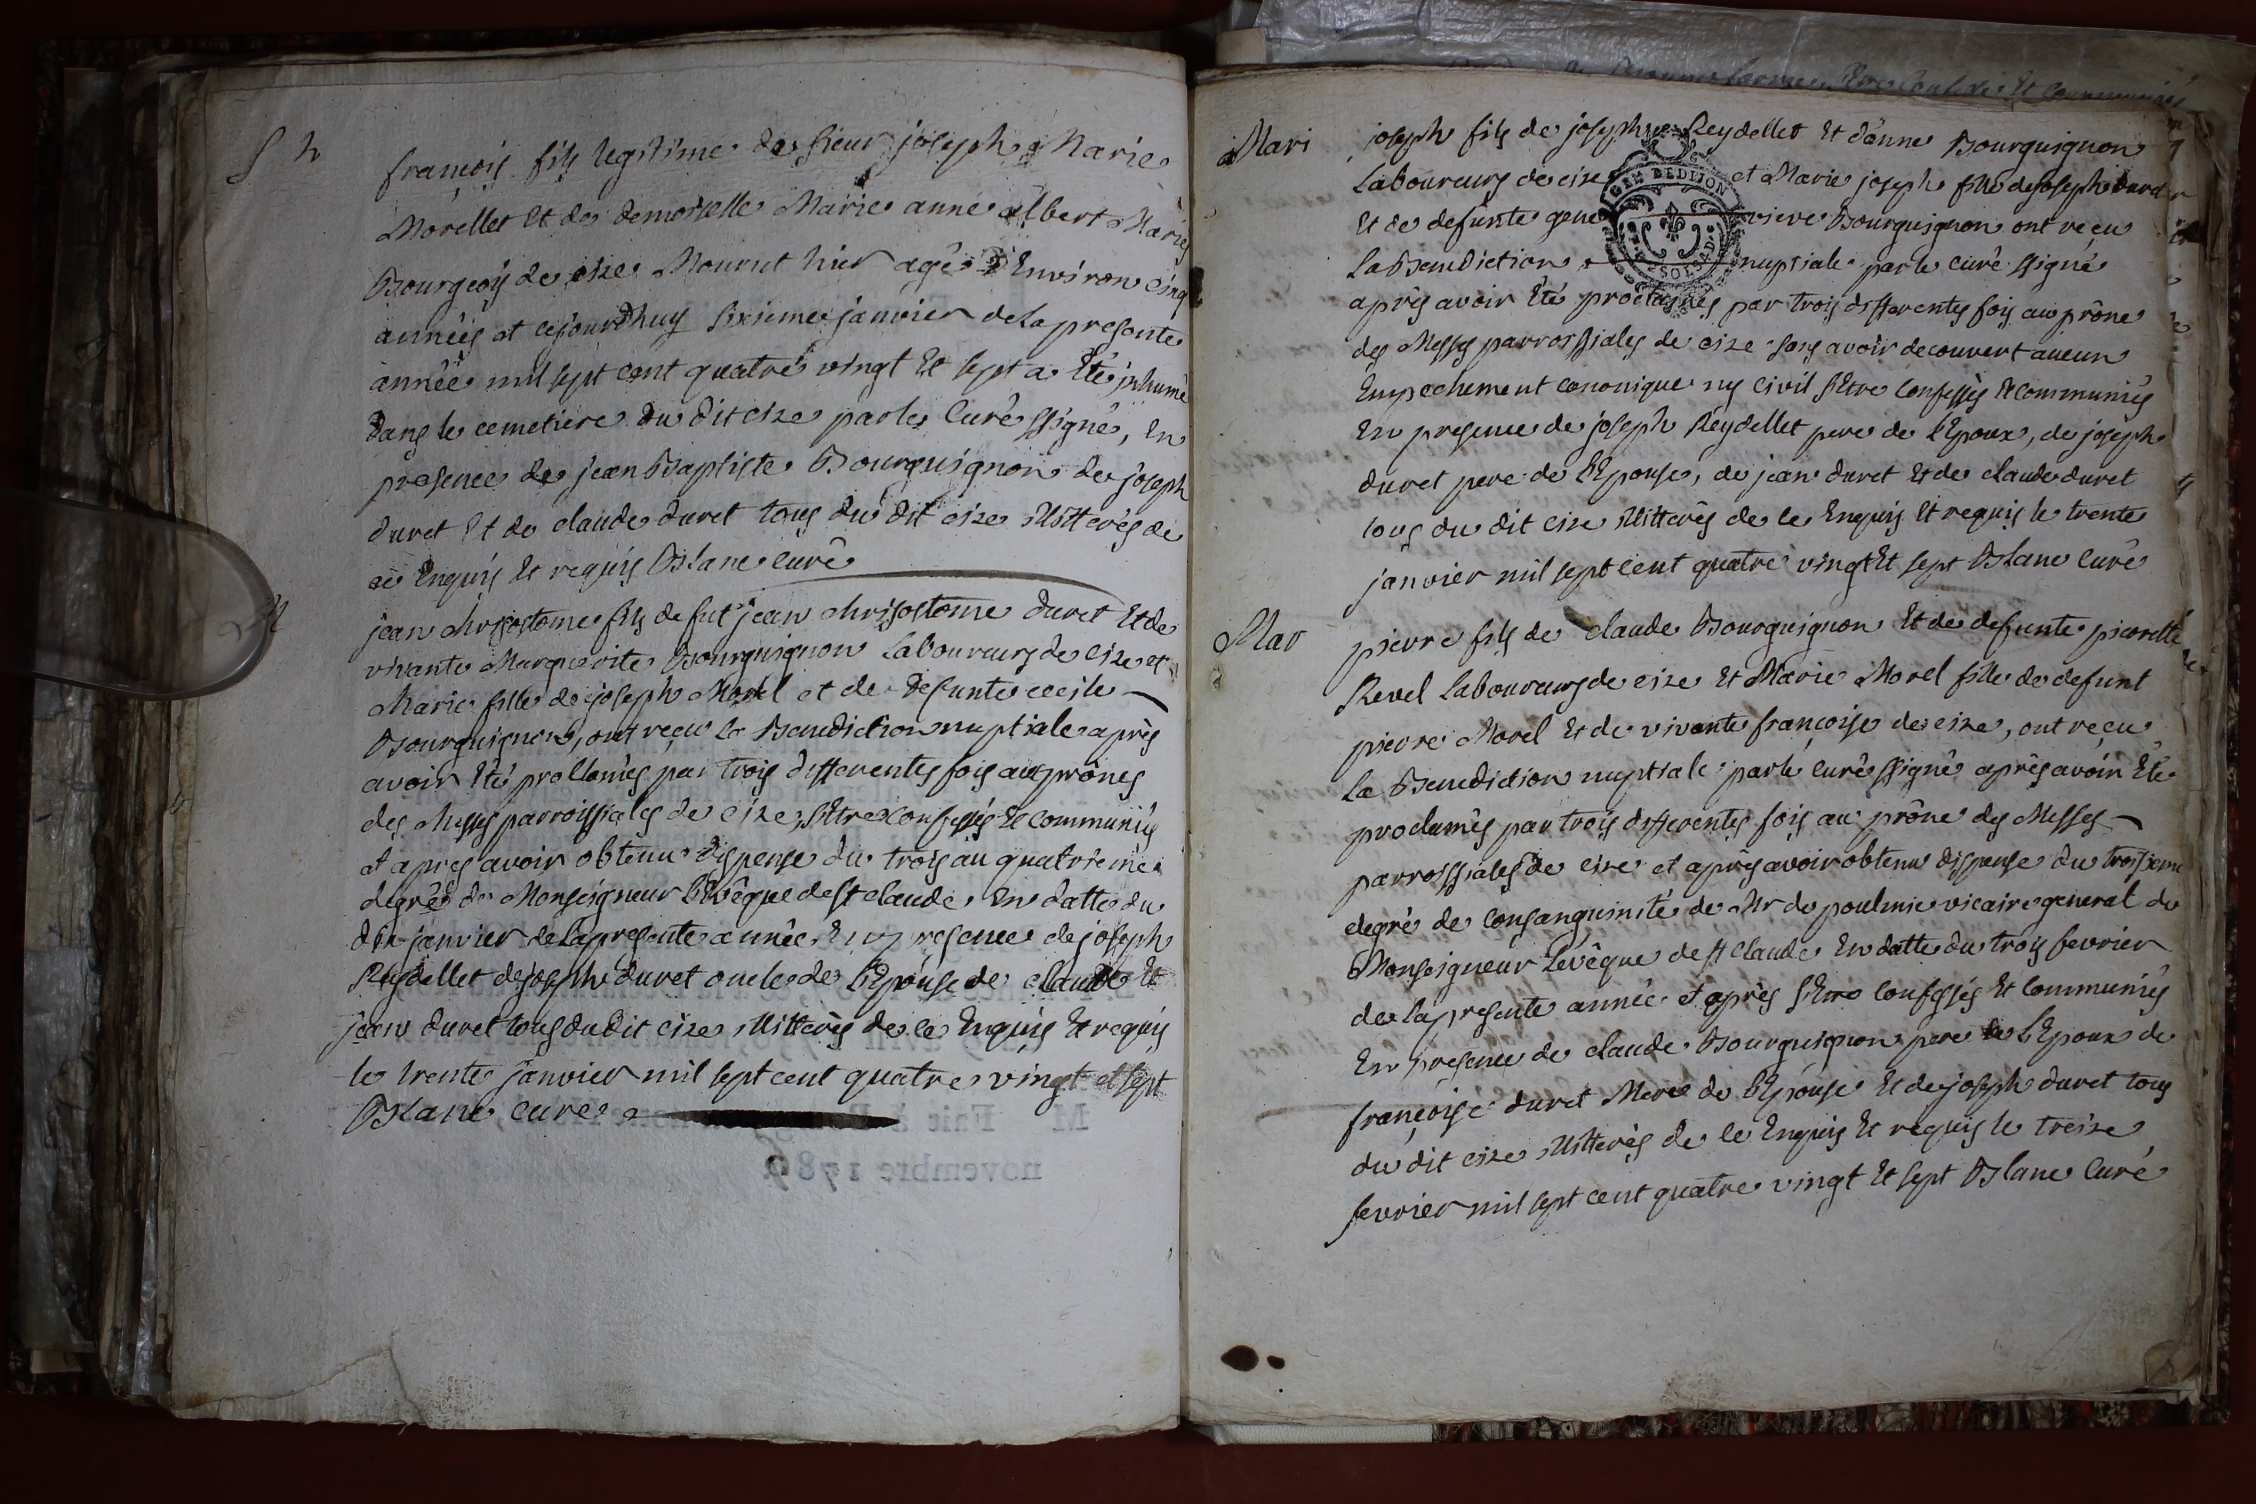 S h
françois fils legitime de sieur joseph Marie
Morellet Et de demoiselle Marie anne albert Mariés
Bourgeois de cize Mourut hier agé d'Environ cinq
années et cejourdhuy sixieme janvier de la presente
année mil sept cent quatre vingt Et sept a Eté inhumé
dans le cemetiere du dit cize par le Curé ssigné, En
presence de jean Baptiste Bourguignon de joseph
duret Et de claude duret tous du dit cize illitterés de
ce Enquis Et requis Blanc curé
M
jean chrisostome fils de fut jean chrisostome duret Et de
vivante Marguerite Bourguignon Laboureurs de Cize et
Marie fille de joseph Morel et de defunte cecile
Bourguignon, ont reçu la Benediction nuptiale après
avoir Eté proclamés par trois differentes fois aux prônes
des Messes parroissiales de cize, s'Etre confessés Et communiés
et apres avoir obtenu dispense du trois au quatrieme
degrés de Monseigneur L'Evêque de st claude En datte du
dix janvier de la presente année En presence de joseph
Reydellet de joseph duret oncle de l'Epouse de claude Et
jean duret tous du dit cize illitterés de ce Enquis Et requis
le trente janvier mil sept cent quatre vingt et sept
Blanc curé
Mari
joseph fils de joseph Reydellet Et d'anne Bourguignon
Laboureurs de cize et Marie joseph fille de joseph duret
Et de defunte gene vieve Bourguignon ont reçu
la Benediction nuptiale par le curé ssigné
après avoir Eté proclamés par trois differentes fois au prône
des Messes parroissiales de cize sans avoir decouvert aucun
Empechement canonique ny civil s'Etre Confessés Et communiés
En presence de joseph Reydellet pere de l'Epoux, de joseph
duret pere de l'Epouse, de jean duret Et de claude duret
tous du dit cize illitterés de ce Enquis Et requis le trente
janvier mil sept cent quatre vingt Et sept Blanc Curé
Mar
pierre fils de claude Bourguignon Et de defunte pierrette
Revel Laboureurs de cize Et Marie Morel fille de defunt
pierre Morel Et de vivante françoise de cize, ont reçu
la Benediction nuptiale par le curé ssigné après avoir Eté
proclamés par trois differentes fois au prône des Messes
parroissiales de cize et après avoir obtenu dispense du troisieme
degré de consanguinité de Mr de poulmic vicaire general de
Monseigneur l'evêque de st Claude En datte du trois fevrier
de la presente année et après s'Etre Confessés Et Communiés
En presence de claude Bourguignon pere de l'Epoux de
françoise duret Mere de l'Epouse Et de joseph duret tous
du dit cize illitterés de ce Enquis Et requis le treize
fevrier mil sept cent quatre vingt Et sept Blanc Curé